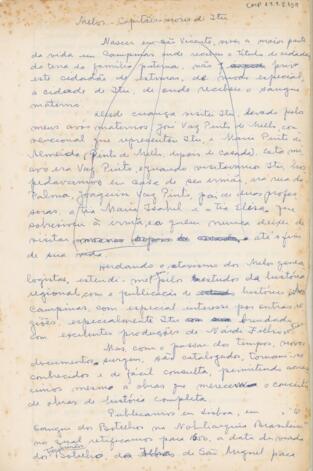 CMP 1.1.2.8.109
Melos - Capitães-mores de Itu
Nasceu em São Vicente, viveu a maior parte
da vida em Campinas onde recebeu o título de cidadão
da terra da família paterna, não
este cidadão de estimar, de modo especial,
a cidade de Itu, de onde recebeu o sangue
materno.
Desde criança visitei Itu, levado pelo
meus avós maternos José Vaz Pinto de Mello, cor
que representou Itu, e Maria Pinto de
Almeida (Pinto de Mello, depois de casada). Este meu
avô era Vaz Pinto, e quando visitávamos Itu, hos
pedávamos em casa de seu irmão, na rua da
Palma, Joaquim Vaz Pinto, pai de duas profes
soras, a tia Maria Isabel e a tia Elisa, que
sobreviveu à irmã, e a quem nunca deixei de
visitar até o fim
de sua vida.
Herdando o atavismo dos Melos genea
logistas, estendi-me pelos estudos da história
regional, com a publicação de histórias
Campinas, com especial interesse por outras re
giões, especialmente Itu
com excelentes produções de Nardi Filho
Mas, com o passar dos tempos, novos
documentos surgem, são catalogados, tornam-se
conhecidos e de fácil consulta, permitindo acrés
cimos mesmo a obras que merecem o conceito
de obras de história completa.
Publicamos em Lisboa, em "O
Sangue dos Botelhos na Nobiliarquia Brasileira"
no qual retificamos para 1600, a data da vinda
dos Botelho, da Ilha de São Miguel para